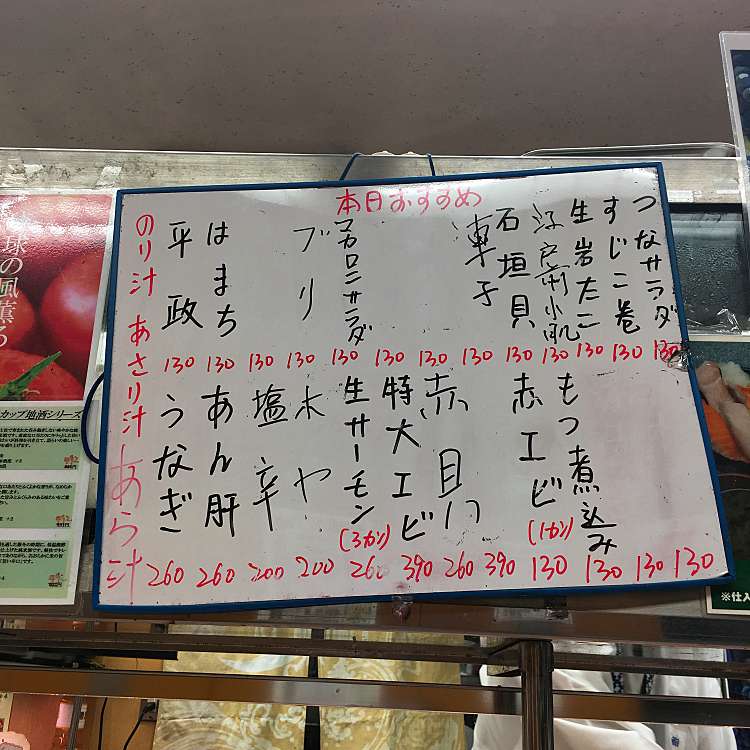 本日おすすめ
つなサラダ
すじこ巻
生岩たこ
江戸前小肌
石垣貝
マカロニサラダ
ブリ
はまち
平政
のり汁 あさり汁 あら汁
130 130 130 130 130 130 130 130 130 130 130 130 130
もつ煮込み
赤エビ
(1カン)
赤貝
特大エビ
生サーモン
(3カン)
ホヤ
塩辛
あん肝
うなぎ
260 260 200 200 260 390 260 390 130 130 130 130
球の風薫る
カップ地酒シリーズ
※仕入